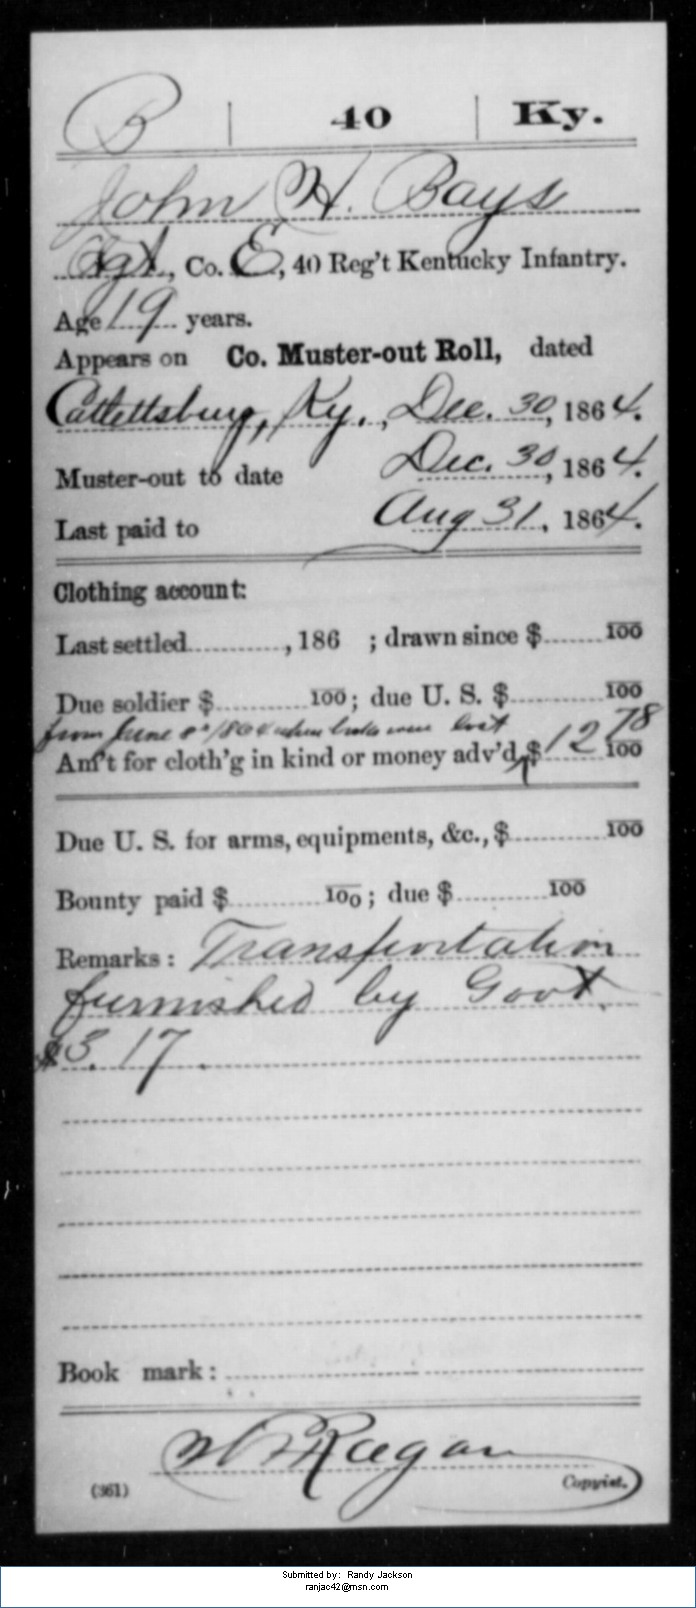 B | 40 | Ky.
John H. Bays
Sgt, Co. E, 40 Reg't Kentucky Infantry.
Age 19 years.
Appears on Co. Muster-out Roll, dated
Catlettsburg, Ky., Dec. 30, 1864.
Muster-out to date Dec. 30, 1864.
Last paid to Aug 31, 1864.
Clothing account:
Last settled , 186 ; drawn since $ 100
Due soldier $ 100; due U. S. $ 100
from June 1864 when books were lost
Am't for cloth'g in kind or money adv'd $ 12 78/100
Due U. S. for arms, equipments, &c., $ 100
Bounty paid $ 100; due $ 100
Remarks: Transportation
furnished by Govt.
$3.17.
Book mark:
Ragan
(361) Copyist.
Submitted by: Randy Jackson
ranjac42@msn.com